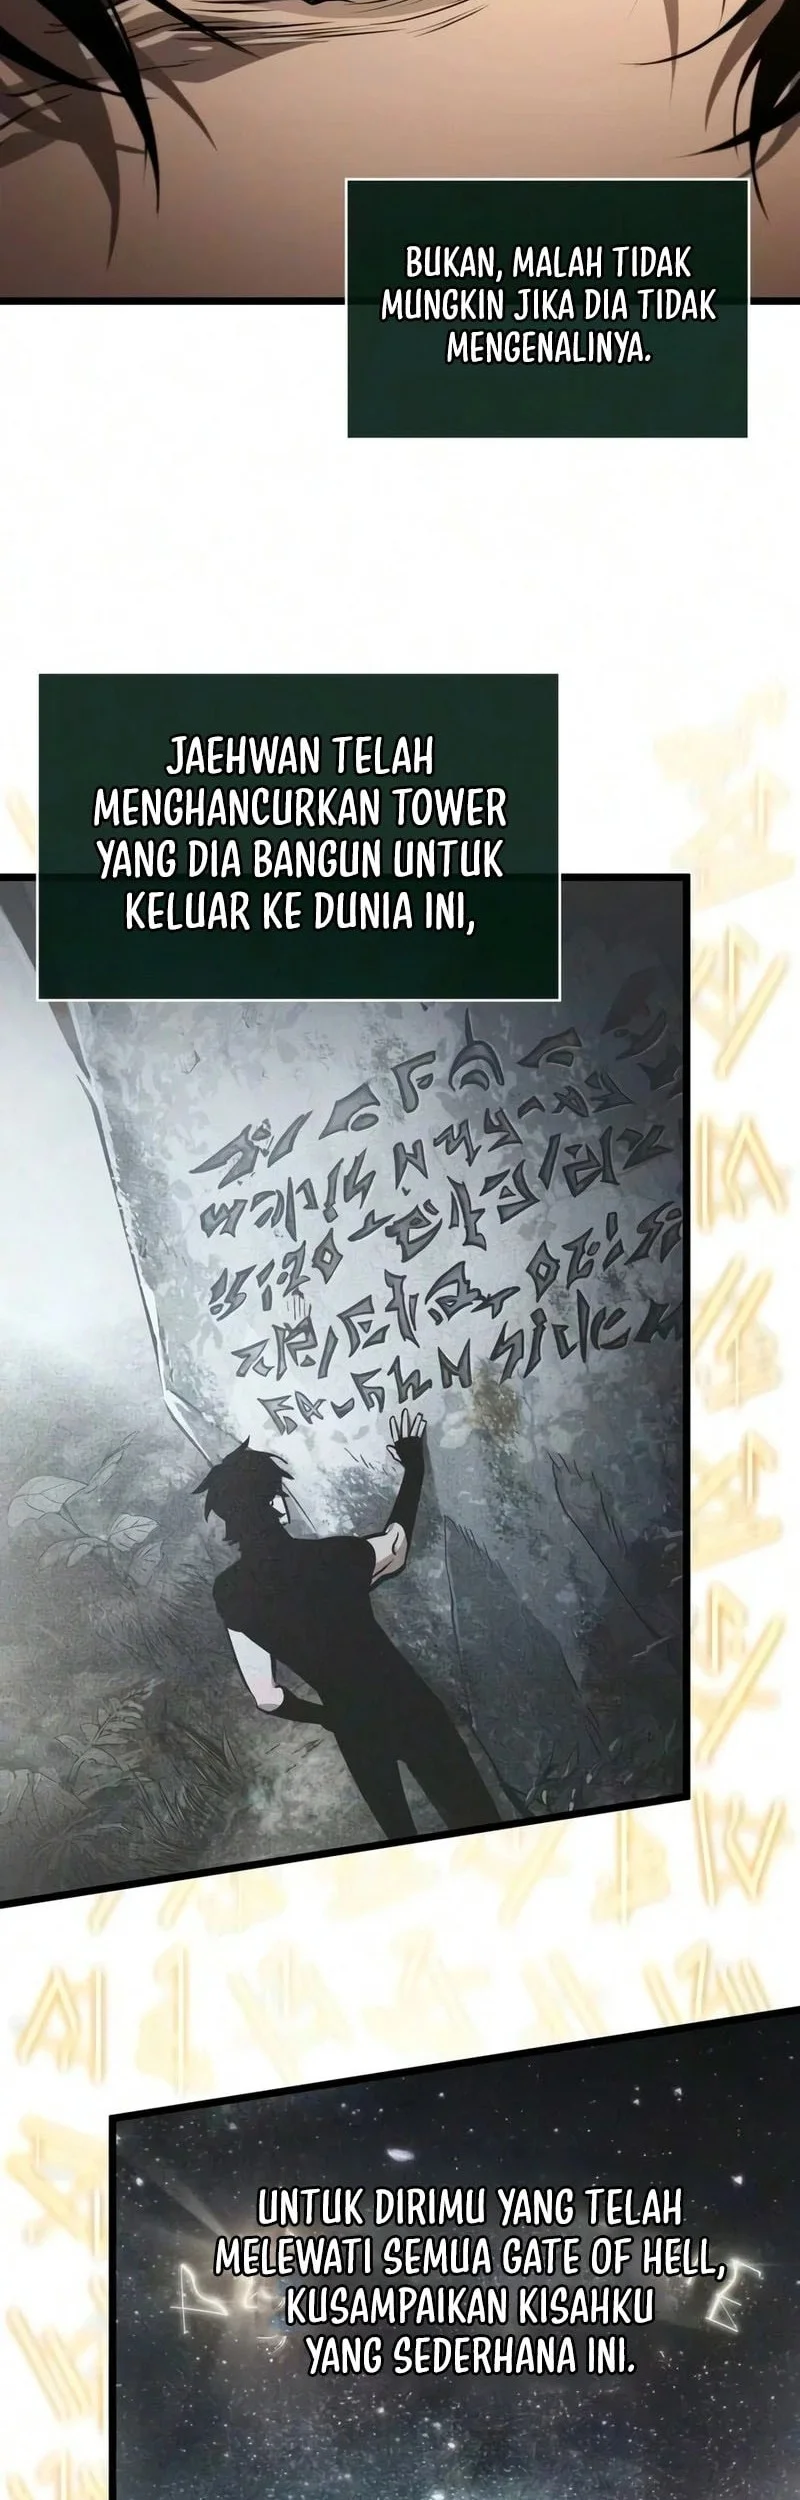 BUKAN, MALAH TIDAK
MUNGKIN JIKA DIA TIDAK
MENGENALINYA.
JAEHWAN TELAH
MENGHANCURKAN TOWER
YANG DIA BANGUN UNTUK
KELUAR KE DUNIA INI,
UNTUK DIRIMU YANG TELAH
MELEWATI SEMUA GATE OF HELL,
KUSAMPAIKAN KISAHKU
YANG SEDERHANA INI.